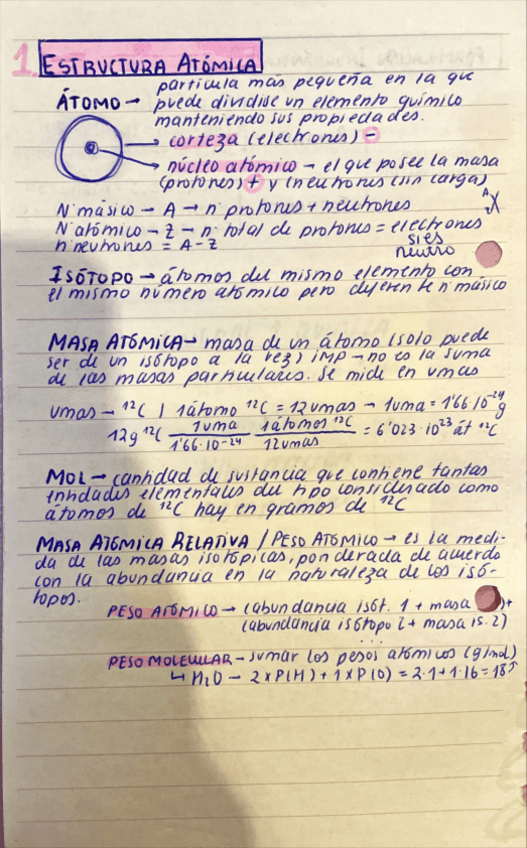 1. ESTRUCTURA ATÓMICA
ÁTOMO → partícula más pequeña en la que
puede dividirse un elemento químico
manteniendo sus propiedades.
→ corteza (electrones) -
→ núcleo atómico → el que posee la masa
(protones) + y (neutrones (sin carga)
Nº másico → A → nº protones + neutrones
A X
Nº atómico → Z → nº total de protones = electrones
si es
neutro
nº neutrones = A - Z
ISÓTOPO → átomos del mismo elemento con
el mismo número atómico pero diferente nº másico
MASA ATÓMICA → masa de un átomo (solo puede
ser de un isótopo a la vez) IMP → no es la suma
de las masas particulares. Se mide en umas
umas → ¹²C | 1 átomo ¹²C = 12 umas → 1 uma = 1'66·10⁻²⁴ g
12g ¹²C 1uma / 1'66·10⁻²⁴ 1 átomos ¹²C / 12umas = 6'023·10²³ át ¹²C
MOL → cantidad de sustancia que contiene tantas
entidades elementales del tipo considerado como
átomos de ¹²C hay en gramos de ¹²C
MASA ATÓMICA RELATIVA / PESO ATÓMICO → es la medi-
da de las masas isotópicas, ponderada de acuerdo
con la abundancia en la naturaleza de los isó-
topos.
PESO ATÓMICO → (abundancia isót. 1 + masa )+
(abundancia isótopo 2 + masa is. 2)
...
PESO MOLECULAR → sumar los pesos atómicos (g/mol)
↳ H₂O → 2 x P(H) + 1 x P(O) = 2·1 + 1·16 = 18